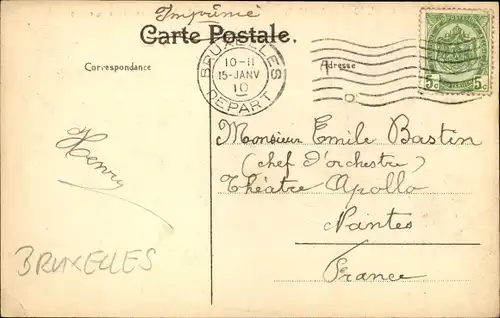 Imprimé
Carte Postale.
Correspondance
Adresse
BRUXELLES
10-11
15-JANV
10
DEPART
5c 5c
Monsieur Emile Bastin
(chef d'orchestre)
Théâtre Apollo
Nantes
France
Henry
BRUXELLES